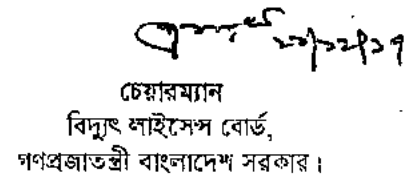 চেয়ারম্যান
বিদ্যুৎ লাইসেন্স বোর্ড,
গণপ্রজাতন্ত্রী বাংলাদেশ সরকার।